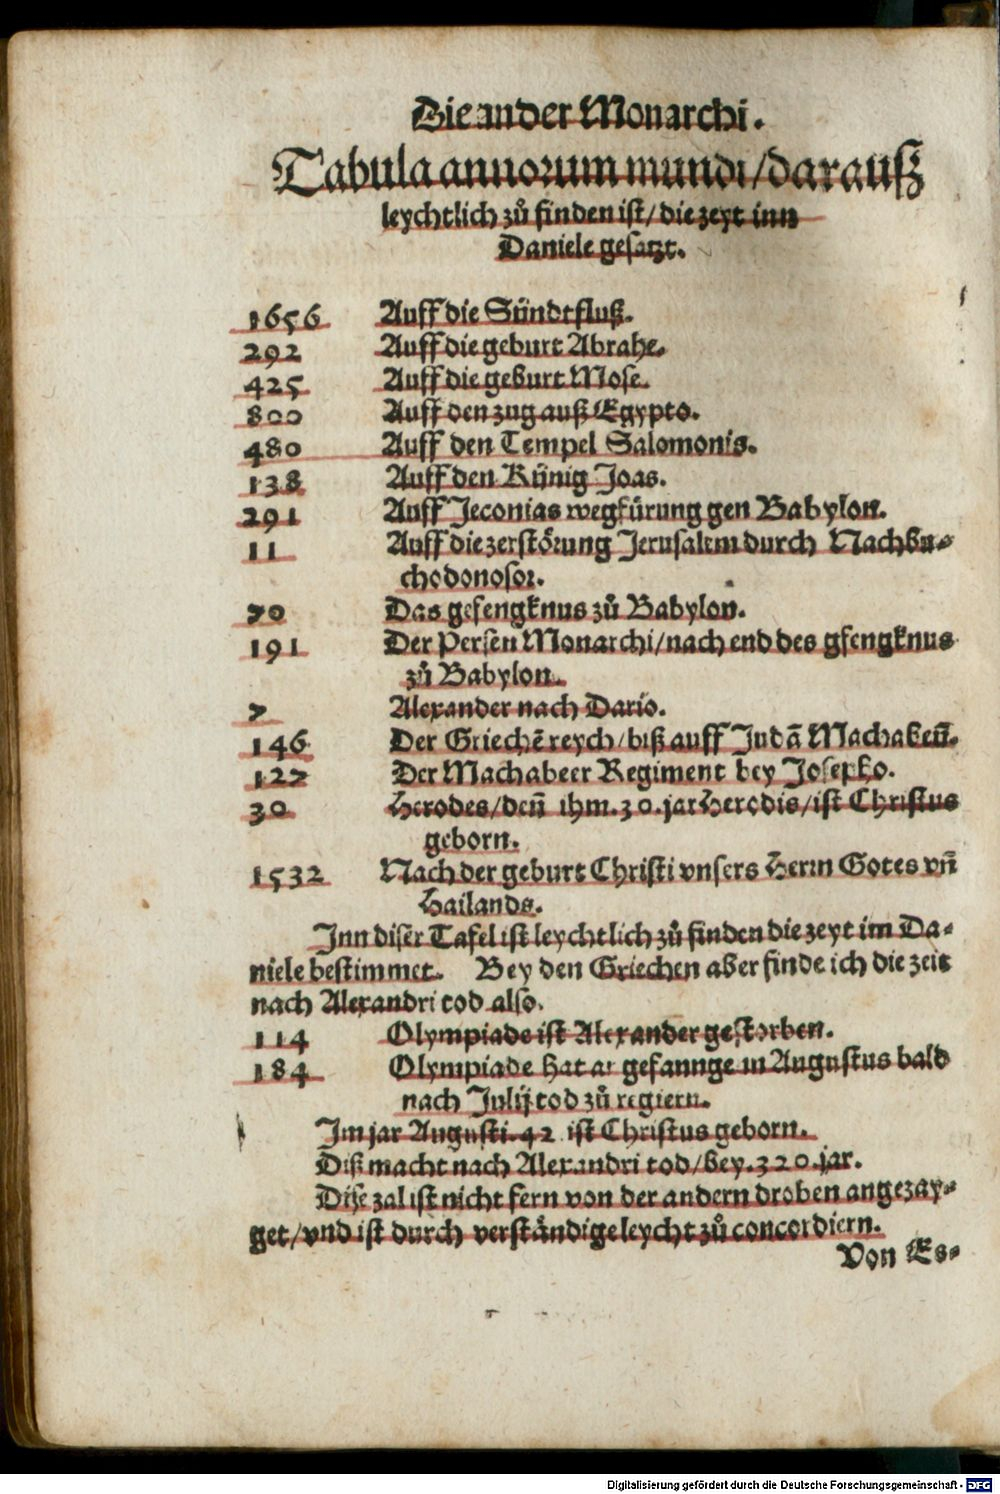 Die ander Monarchi.
Tabula annorum mundi/darauß
leychtlich zů finden ist/die zeyt inn
Daniele gesatzt.
1656 Auff die Sündtfluß.
292 Auff die geburt Abrahe.
425 Auff die geburt Mose.
800 Auff den zug auß Egypto.
480 Auff den Tempel Salomonis.
138 Auff den Künig Joas.
291 Auff Jeconias wegfürung gen Babylon.
11 Auff die zerstörung Jerusalem durch Nachbu-
chodonosor.
70 Das gefengknus zů Babylon.
191 Der Persen Monarchi/nach end des gfengknus
zů Babylon.
7 Alexander nach Dario.
146 Der Griechē reych/biß auff Judā Machabeū.
127 Der Machabeer Regiment bey Josepho.
30 Herodes/deñ ihm.30.jar Herodis/ist Christus
geborn.
1532 Nach der geburt Christi vnsers Herrn Gotes vñ
Hailands.
Inn diser Tafel ist leychtlich zů finden die zeyt im Da-
niele bestimmet. Bey den Griechen aber finde ich die zeit
nach Alexandri tod also.
114 Olympiade ist Alexander gestorben.
184 Olympiade hat angefanngen Augustus bald
nach Julij tod zů regiern.
Im jar Augusti.42 ist Christus geborn.
Diß macht nach Alexandri tod/bey.320.jar.
Dise zal ist nicht fern von der andern droben angezay-
get/vnd ist durch verständige leycht zů concordiern.
Von Es-
Digitalisierung gefördert durch die Deutsche Forschungsgemeinschaft - DFG